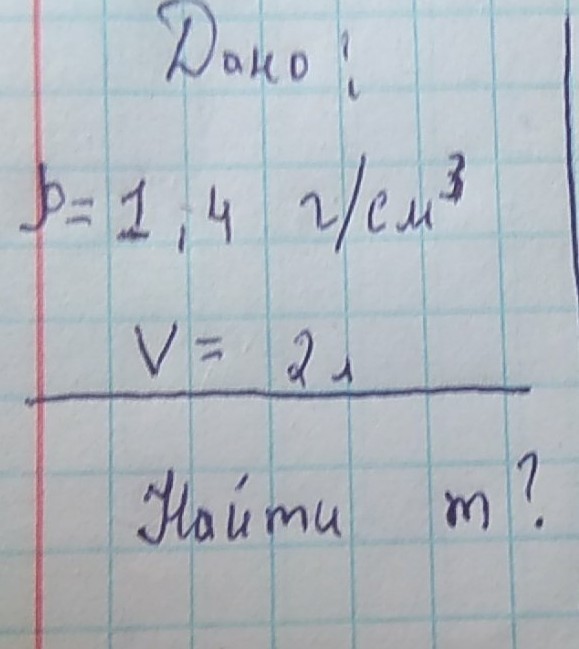 Дано:
ρ = 1,4 г/см³
V = 2 л
Найти m?